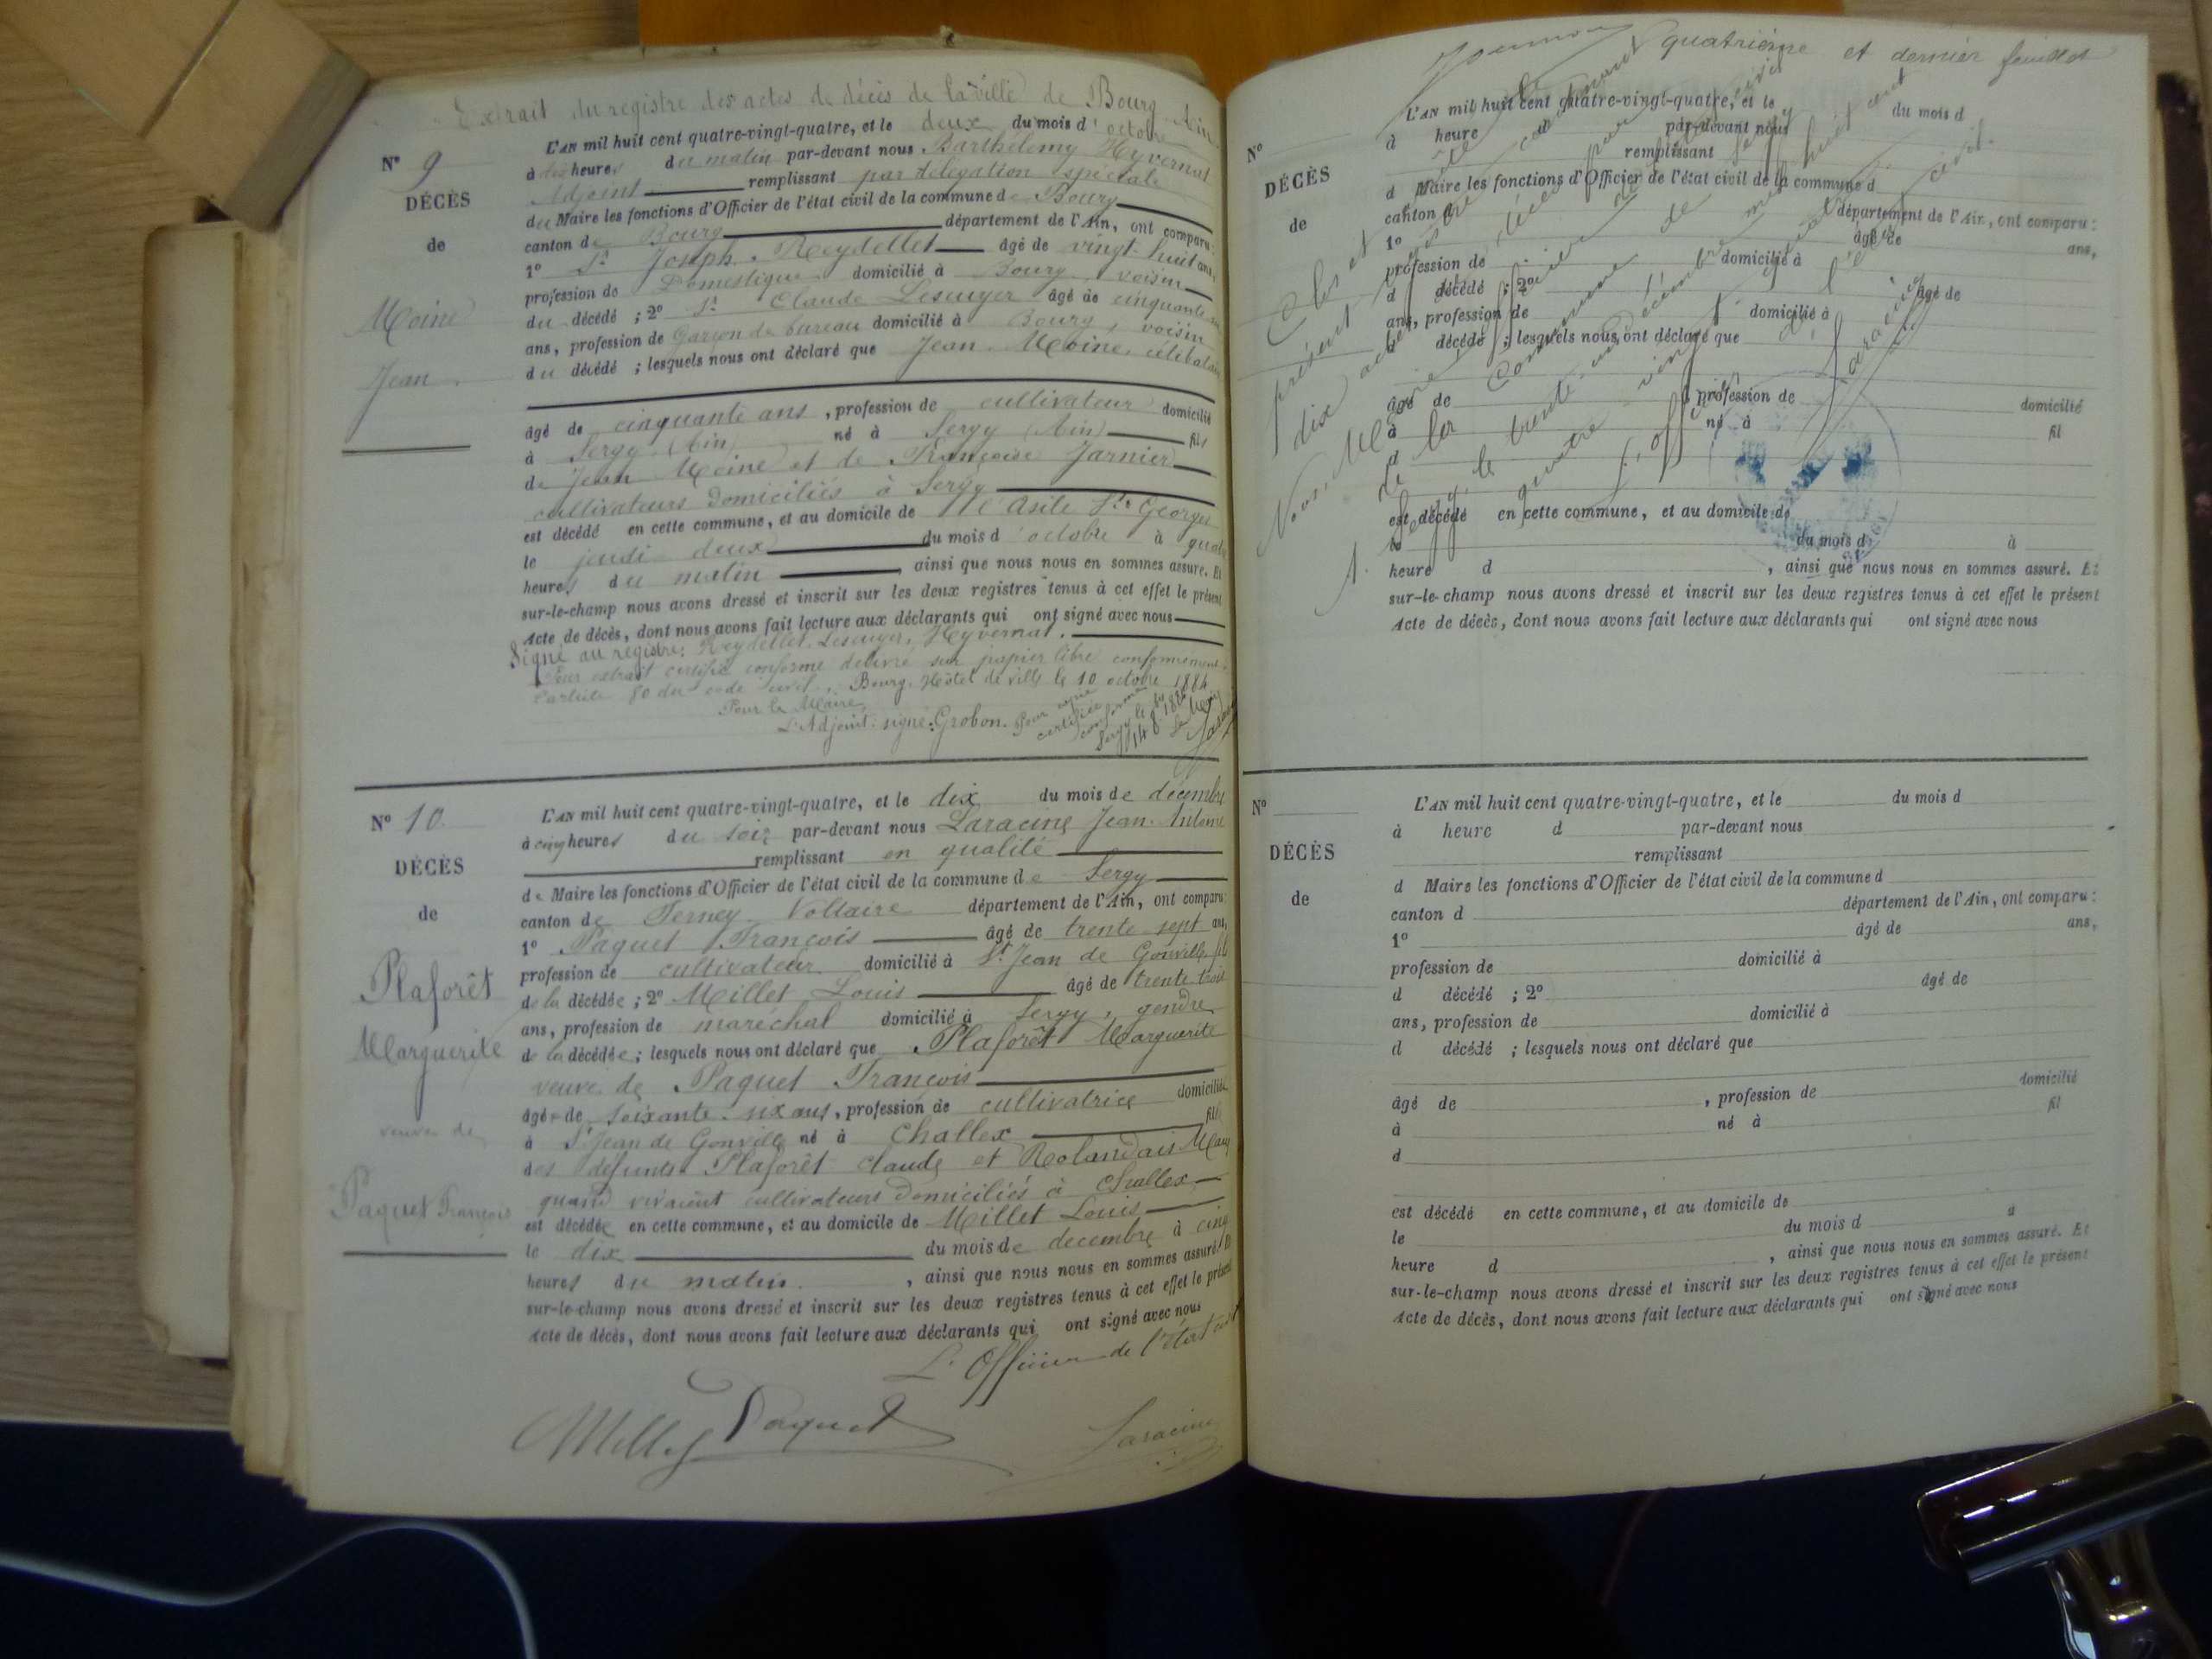 Extrait du registre des actes de décès de la ville de Bourg Ain
N° 9
DÉCÈS
de
Moine
Jean.
L'AN mil huit cent quatre-vingt-quatre, et le deux du mois d'octobre
à dix heures du matin par-devant nous Barthélemy Hyvernat
Adjoint remplissant par délégation spéciale
du Maire les fonctions d'Officier de l'état civil de la commune de Bourg
canton de Bourg département de l'Ain, ont comparu:
1° Sr Joseph Reydellet âgé de vingt-huit ans,
profession de Domestique domicilié à Bourg, voisin
du décédé ; 2° Sr Claude Lescuyer âgé de cinquante
ans, profession de Garçon de bureau domicilié à Bourg, voisin
du décédé ; lesquels nous ont déclaré que Jean Moine, célibataire
âgé de cinquante ans, profession de cultivateur domicilié
à Sergy (Ain) né à Sergy (Ain) fils
de Jean Moine et de Françoise Jarnier
cultivateurs domiciliés à Sergy
est décédé en cette commune, et au domicile de l'Asile St Georges
le jeudi deux du mois d'octobre à quatre
heures du matin, ainsi que nous nous en sommes assuré. Et
sur-le-champ nous avons dressé et inscrit sur les deux registres tenus à cet effet le présent
Acte de décès, dont nous avons fait lecture aux déclarants qui ont signé avec nous
Signé au registre: Reydellet, Lescuyer, Hyvernat.
Pour extrait certifié conforme délivré sur papier libre conformément
l'article 80 du code civil. Bourg, Hôtel de ville le 10 octobre 1884
Pour le Maire
L'Adjoint: signé: Grobon.
Pour copie
certifiée
conforme
Sergy le
14 8bre 1884
Le Maire
N° 10
DÉCÈS
de
Plaforêt
Marguerite
veuve de
Paquet François
L'AN mil huit cent quatre-vingt-quatre, et le dix du mois de décembre
à cinq heures du soir par-devant nous Laracine Jean-Antoine
remplissant en qualité
de Maire les fonctions d'Officier de l'état civil de la commune de Sergy
canton de Ferney Voltaire département de l'Ain, ont comparu:
1° Paquet François âgé de trente sept ans,
profession de cultivateur domicilié à St Jean de Gonville, fils
de la décédée ; 2° Millet Louis âgé de trente trois
ans, profession de maréchal domicilié à Sergy, gendre
de la décédée ; lesquels nous ont déclaré que Plaforêt Marguerite
veuve de Paquet François
âgée de soixante-six ans, profession de cultivatrice domiciliée
à St Jean de Gonville né à Challex fille
des défunts Plaforêt Claude et Rolandais
quand vivaient cultivateurs domiciliés à Challex
est décédée en cette commune, et au domicile de Millet Louis
le dix du mois de decembre à cinq
heures du matin, ainsi que nous nous en sommes assuré. Et
sur-le-champ nous avons dressé et inscrit sur les deux registres tenus à cet effet le présent
Acte de décès, dont nous avons fait lecture aux déclarants qui ont signé avec nous
L'Officier de l'état civil
Millet Paquet
Laracine
quatrième et dernier feuillet
N°
DÉCÈS
de
L'AN mil huit cent quatre-vingt-quatre, et le du mois d
à heure d par-devant nous
remplissant
d Maire les fonctions d'Officier de l'état civil de la commune d
canton d département de l'Ain, ont comparu:
1° âgé de ans,
profession de domicilié à
d décédé ; 2° âgé de
ans, profession de domicilié à
d décédé ; lesquels nous ont déclaré que
âgé de , profession de domicilié
à né à fil
d
est décédé en cette commune, et au domicile de
le du mois d à
heure d , ainsi que nous nous en sommes assuré. Et
sur-le-champ nous avons dressé et inscrit sur les deux registres tenus à cet effet le présent
Acte de décès, dont nous avons fait lecture aux déclarants qui ont signé avec nous
Clos et
présent
dix actes de décès par
Nous, Maire
de la Commune de Sergy
Sergy, le trente-un décembre mil huit cent
quatre-vingt
L'officier de l'état civil.
Laracine
N°
DÉCÈS
de
L'AN mil huit cent quatre-vingt-quatre, et le du mois d
à heure d par-devant nous
remplissant
d Maire les fonctions d'Officier de l'état civil de la commune d
canton d département de l'Ain, ont comparu:
1° âgé de ans,
profession de domicilié à
d décédé ; 2° âgé de
ans, profession de domicilié à
d décédé ; lesquels nous ont déclaré que
âgé de , profession de domicilié
à né à fil
d
est décédé en cette commune, et au domicile de
le du mois d à
heure d , ainsi que nous nous en sommes assuré. Et
sur-le-champ nous avons dressé et inscrit sur les deux registres tenus à cet effet le présent
Acte de décès, dont nous avons fait lecture aux déclarants qui ont signé avec nous